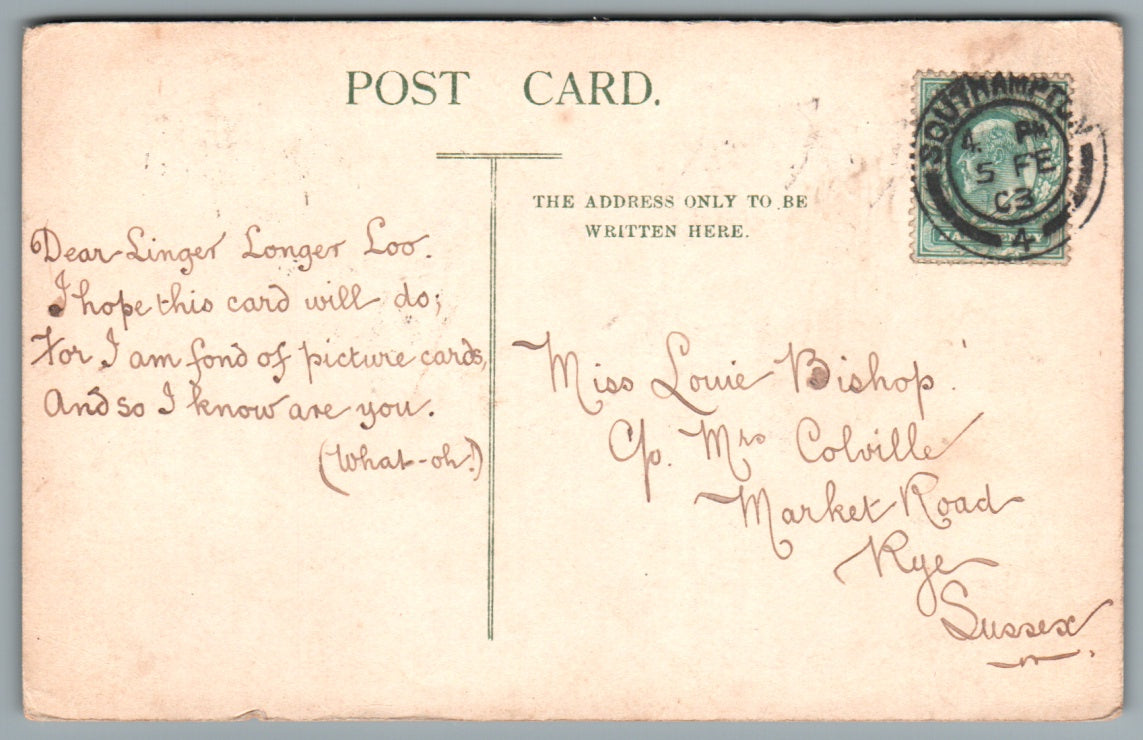 POST CARD.
THE ADDRESS ONLY TO BE
WRITTEN HERE.
SOUTHAMPTON
4. PM
5 FE
03
4
HALFPENNY
Dear Linger Longer Loo.
I hope this card will do;
For I am fond of picture cards,
And so I know are you.
(What-oh!)
Miss Louie Bishop
C/o. Mrs Colville
Market Road
Rye
Sussex